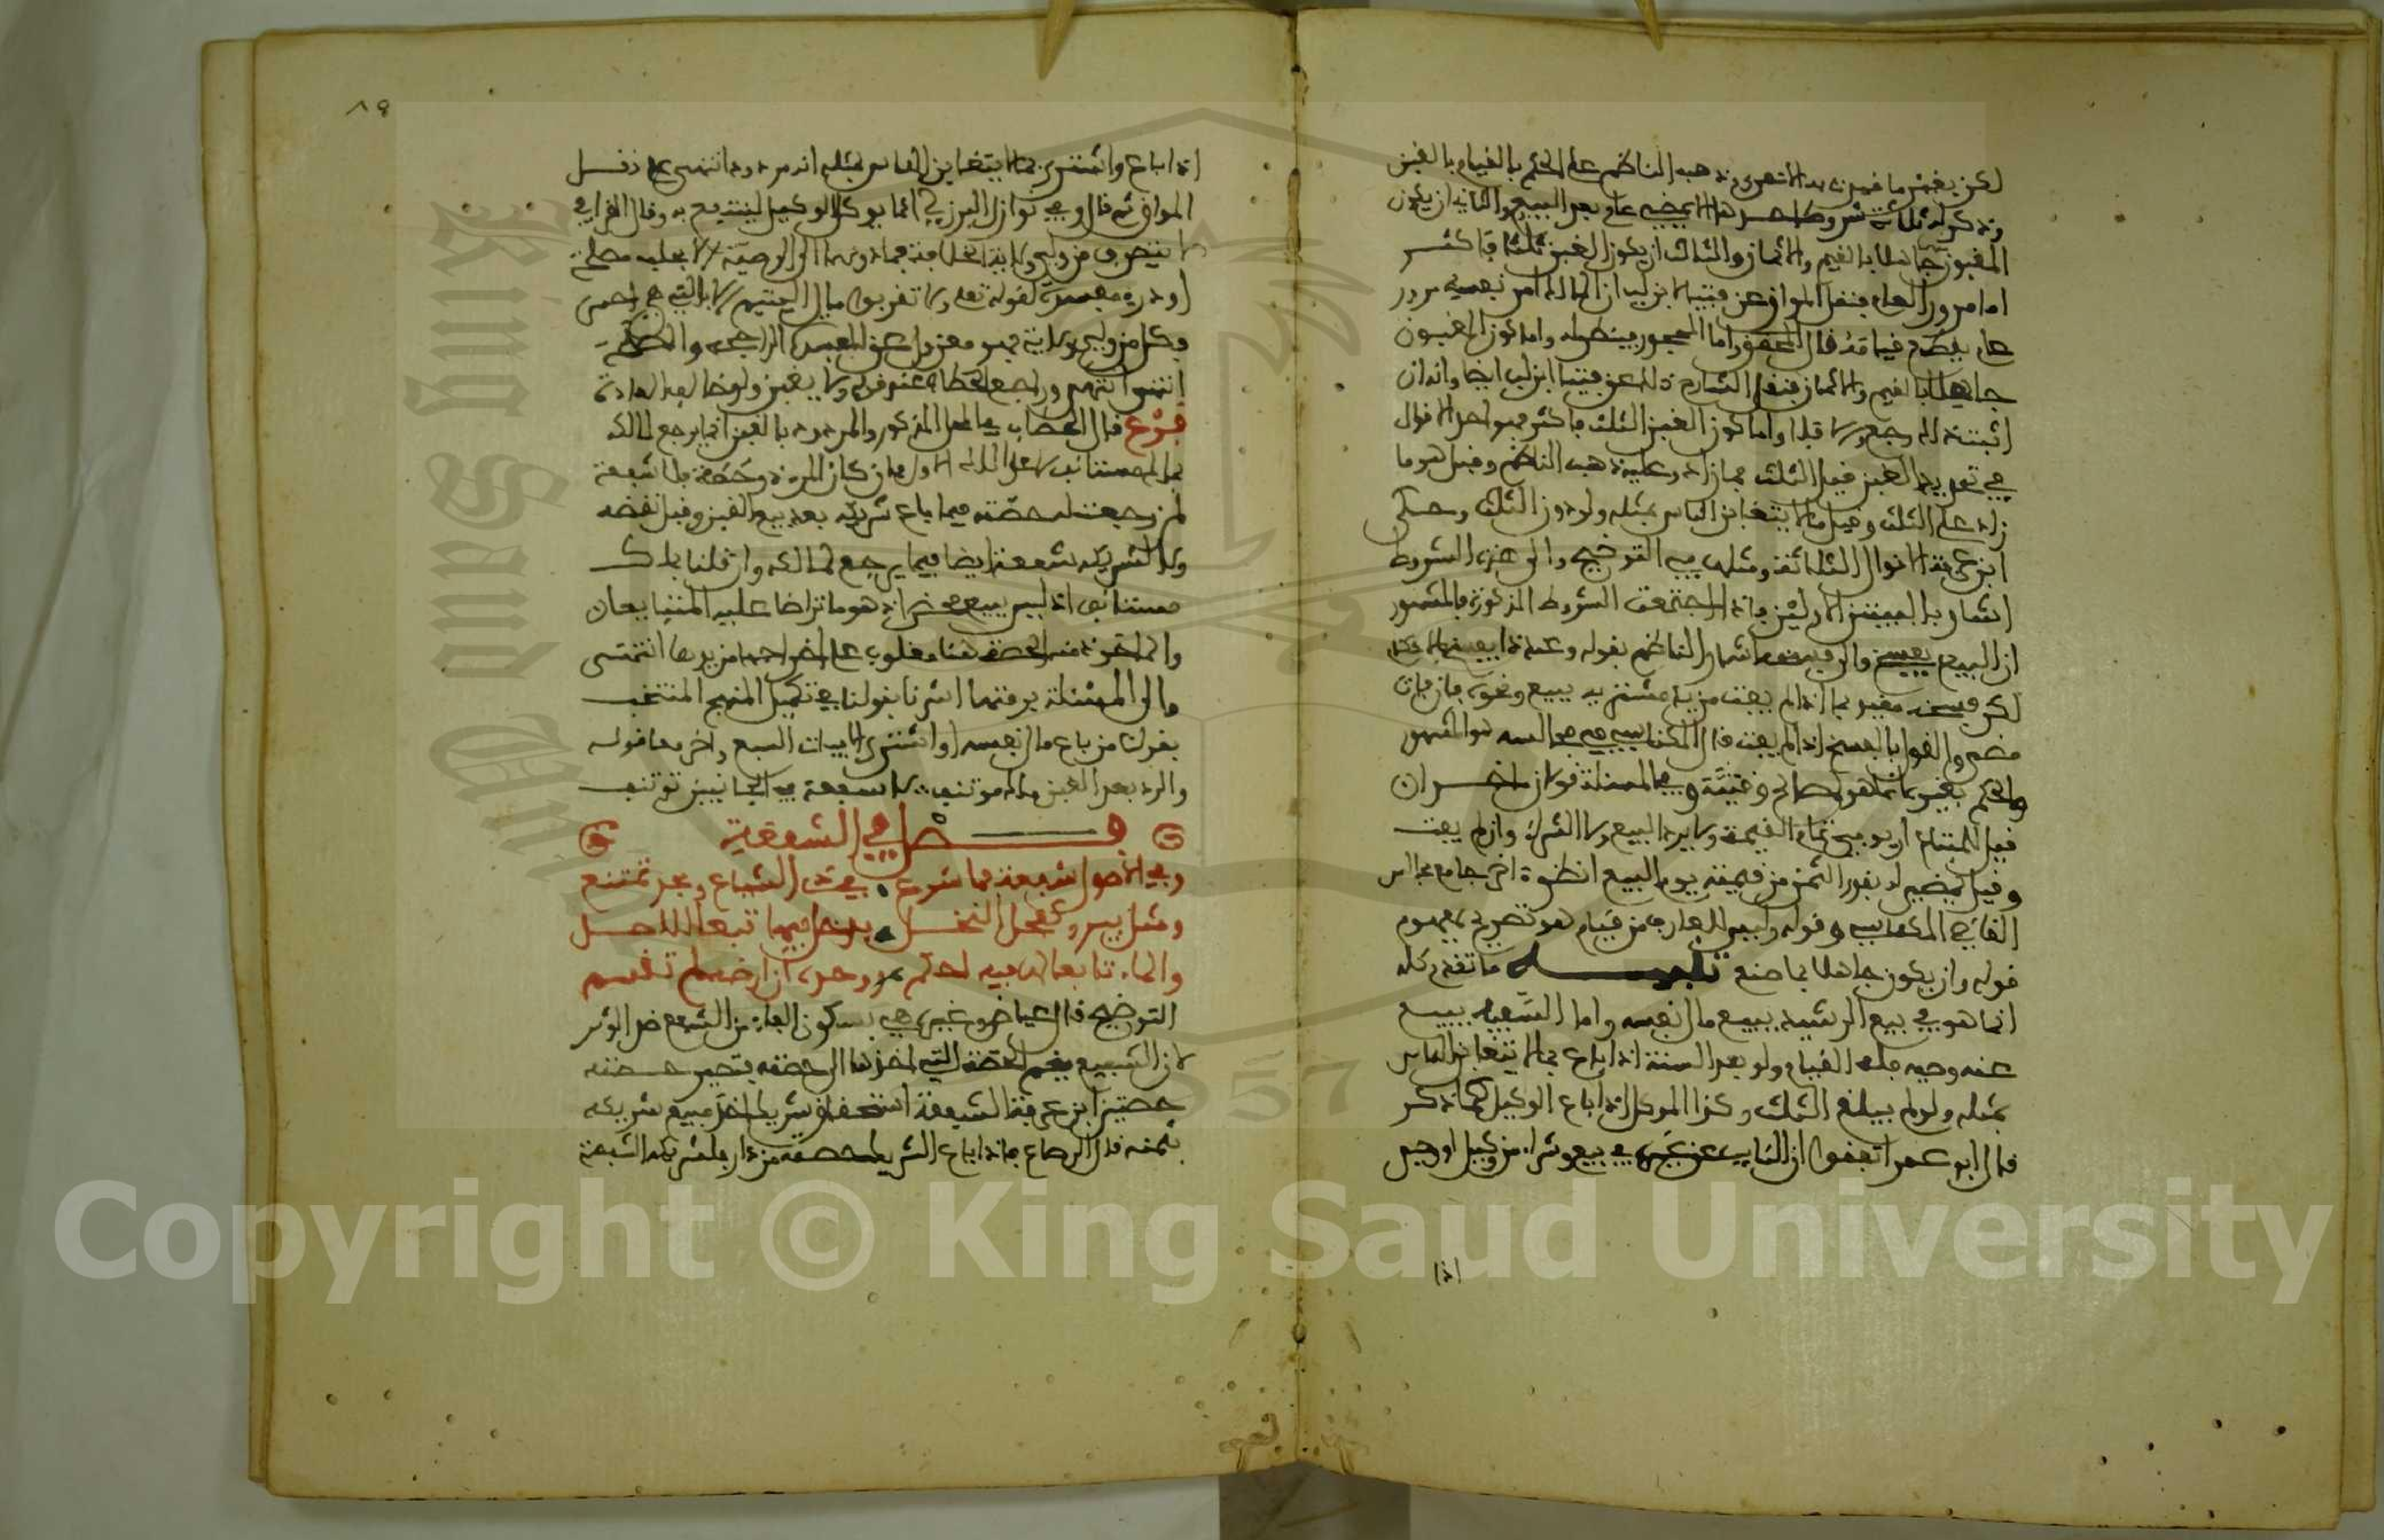 لكن يغتفر ما فيه ذهب الناظم على الحكم بالقيام بالغبن
وذكر له ثلاثة شروط احدها الا يمضي عام بعد البيع والثاني ان يكون
المغبون جاهلا بالقيم والاثمان والثالث ان يكون الغبن ثلثا فاكثر
اما مرور العام فنقل المواق عن فتيا ابن لب ان المالك امر نفسه مرور
عام يقطع قيامه قال المحجور اما المحجور فينظر له واما كون المغبون
جاهلا بالقيم والاثمان فنقل الشارح ذلك عن فتيا ابن لب ايضا وانه ان
اثبت ذلك رجع ولا فلا واما كون الغبن الثلث فاكثر فهو احد الاقوال
في تحديد الغبن فقيل الثلث فما زاد وعليه ذهب الناظم وقيل هو ما
زاد على الثلث وقيل ما لا يتغابن الناس بمثله ولو دون الثلث وحكى
ابن عرفة الاقوال الثلاثة ومثله في التوضيح والى هذه الشروط
اشار بالبيتين الاولين واذا اجتمعت الشروط المذكورة فالمشهور
ان البيع يفسخ والى فسخه اشار الناظم بقوله وعند ذا يفسخ بالاحكام
لكن فسخه مقيد بما اذا لم يفت من يد مشتريه ببيع ونحوه فان فات
مضى والقول بالفسخ اذا لم يفت قال المكناسي في مجالسه هو المشهور
والحكم بغير ما شاهره وفي المسئلة قولان اخران
فقيل للمبتاع ان يوفي تمام القيمة ولا يرد البيع ولا الشراء وان لم يفت
وقيل يمضي له بقدر الثمن من قيمته يوم البيع انظره اخر جامع مجالس
القاضي المكناسي وقوله وليس للعارف من قيام هو تصريح بمفهوم
قوله وان يكون جاهلا بما صنع تنبيه ما تقدم كله
انما هو في بيع الرشيد ببيع مال نفسه واما السفيه يبيع
عنه وصيه فله القيام ولو بعد السنة اذا باع بما لا يتغابن الناس
بمثله ولو لم يبلغ الثلث وكذا الموكل اذا باع الوكيل كما ذكر
قال ابو عمر اتفقوا ان النائب عن غيره في بيع وشراء من وكيل او وصي
اذا
٨٩
اذا باع واشترى بما لا يتغابن الناس بمثله انه مردود انتهى نقل
المواق ثم قال وفي نوازل البرزلي انما يوكل الوكيل لينتفع به وقال القرافي
لا يتصرف من ولي ولاية الخلافة فما دونها الى الوصية الا بجلب مصلحة
او درء مفسدة لقوله تعلى ولا تقربوا مال اليتيم الا بالتي هي احسن
فكل من ولي ولاية فهو معزول عن المفسدة الراجحة
انتهى ورابع الحطاب عند قوله ولا بغبن ولو خالف العادة
فرع قال الحطاب في المحل المذكور والمردود بالغبن انما يرجع لمالكه
بملك مستانف لا على الملك الاول فان كان المردود حصة فلا شفعة
لمن رجعت له حصته فيما باع شريكه بعد بيع الغبن وقبل نقضه
ولا لشريكه شفعة ايضا فيما يرجع لمالكه وان قلنا بملك
مستانف اذ ليس ببيع محض اذ هو ما تراضا عليه المتبايعان
والماخوذ منه الحصة هنا مغلوب على اخراجها من يده انتهى
والى المسئلة برمتها اشرنا بقولنا في تكميل المنهج المنتخب
بقولنا من باع مال نفسه او اشترى الابيات السبع واخرها قوله
والرد بعد الغبن ملك موتنف ∴ لا شفعة في الجانبين توتنف
فصل في الشفعة
وفي الاصول شفعة مما شرع • في ذي الشياع وبحد تمتنع
ومثل بير وكفحل النخل • يدخل فيها تبعا للاصل
والماء تابع لها فيه احكم • ووحده ان ارضه لم تقسم
التوضيح قال عياض وغيره هي بسكون الفاء من الشفع ضد الوتر
لان الشفيع يضم الحصة التي اخذها الى حصته فتصير حصته
حصتين ابن عرفة الشفعة استحقاق شريك اخذ مبيع شريكه
بثمنه قال الرصاع فاذا باع الشريك حصته من دار فلشريكه الشفعة